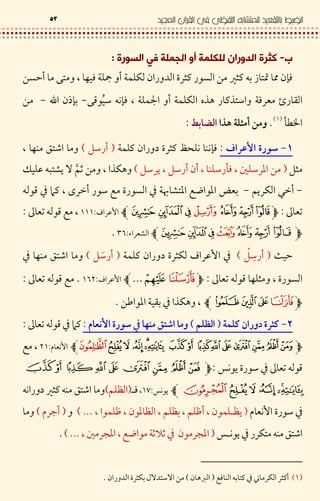 الضبط بالتقعيد للمتشابه اللفظي في القرآن المجيد
٥٣
ب- كثرة الدوران للكلمة أو الجملة في السورة :
فإن مما تمتاز به كثير من السور كثرة الدوران لكلمة أو جملة فيها ، ومتى ما أحسن
القارئ معرفة واستذكار هذه الكلمة أو الجملة ، فإنه سيُوقى - بإذن الله - من
الخطأ (١) . ومن أمثلة هذا الضابط :
١- سورة الأعراف : فإننا نلحظ كثرة دوران كلمة ( أرسل ) وما اشتق منها ،
مثل ( من المرسلين ، فأرسلنا ، أن أرسل ، يرسل ) وهكذا ، ومن ثمَّ لا يشتبه عليك
- أخي الكريم - بعض المواضع المتشابهة في السورة مع سور أخرى ، كما في قوله
تعالى : ﴿ قَالُوٓا۟ أَرْجِهْ وَأَخَاهُ وَأَرْسِلْ فِى ٱلْمَدَآئِنِ حَٰشِرِينَ ﴾ الأعراف:١١١ ، مع قوله تعالى :
﴿ قَالُوٓا۟ أَرْجِهْ وَأَخَاهُ وَٱبْعَثْ فِى ٱلْمَدَآئِنِ حَٰشِرِينَ ﴾ الشعراء:٣٦ .
حيث ( أَرْسِل ) في الأعراف لكثرة دوران كلمة ( أرسَل ) وما اشتق منها في
السورة ، ومثلها قوله تعالى : ﴿ فَأَرْسَلْنَا عَلَيْهِمْ ... ﴾ الأعراف:١٦٢ . مع قوله تعالى :
﴿ فَأَنزَلْنَا عَلَى ٱلَّذِينَ ظَلَمُوا۟ ﴾ ، وهكذا في بقية المواطن .
٢- كثرة دوران كلمة ( الظلم ) وما اشتق منها في سورة الأنعام : كما في قوله تعالى :
﴿ وَمَنْ أَظْلَمُ مِمَّنِ ٱفْتَرَىٰ عَلَى ٱللَّهِ كَذِبًا أَوْ كَذَّبَ بِـَٔايَٰتِهِۦٓ إِنَّهُۥ لَا يُفْلِحُ ٱلظَّٰلِمُونَ ﴾ الأنعام:٢١ ، مع
قوله تعالى في سورة يونس : ﴿ فَمَنْ أَظْلَمُ مِمَّنِ ٱفْتَرَىٰ عَلَى ٱللَّهِ كَذِبًا أَوْ كَذَّبَ
بِـَٔايَٰتِهِۦٓ إِنَّهُۥ لَا يُفْلِحُ ٱلْمُجْرِمُونَ ﴾ يونس:١٧، فـ(الظلم)وما اشتق منه كثير دورانه
في سورة الأنعام ( يظلمون ، أظلم ، بظلم ، الظالمون ، ظلموا ، ... ) و ( أجرم ) وما
اشتق منه متكرر في يونس ( المجرمون في ثلاثة مواضع ، المجرمين ، ... ) .
(١) أكثر الكرماني في كتابه النافع ( البرهان ) من الاستدلال بكثرة الدوران .